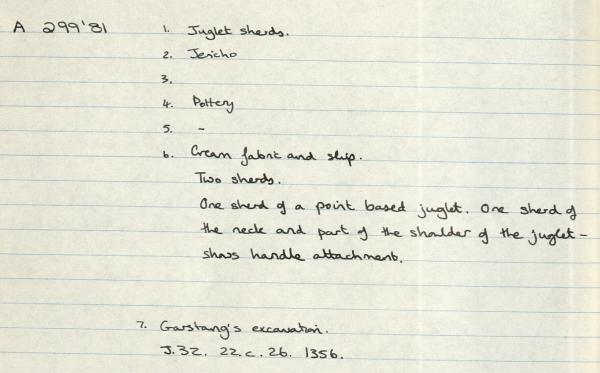 A 299'81 1. Juglet sherds.
2. Jericho
3.
4. Pottery
5. -
6. Cream fabric and slip.
Two sherds.
One sherd of a point based juglet. One sherd of
the neck and part of the shoulder of the juglet -
shows handle attachment.
7. Garstang's excavation.
J.32. 22.c. 26. 1356.